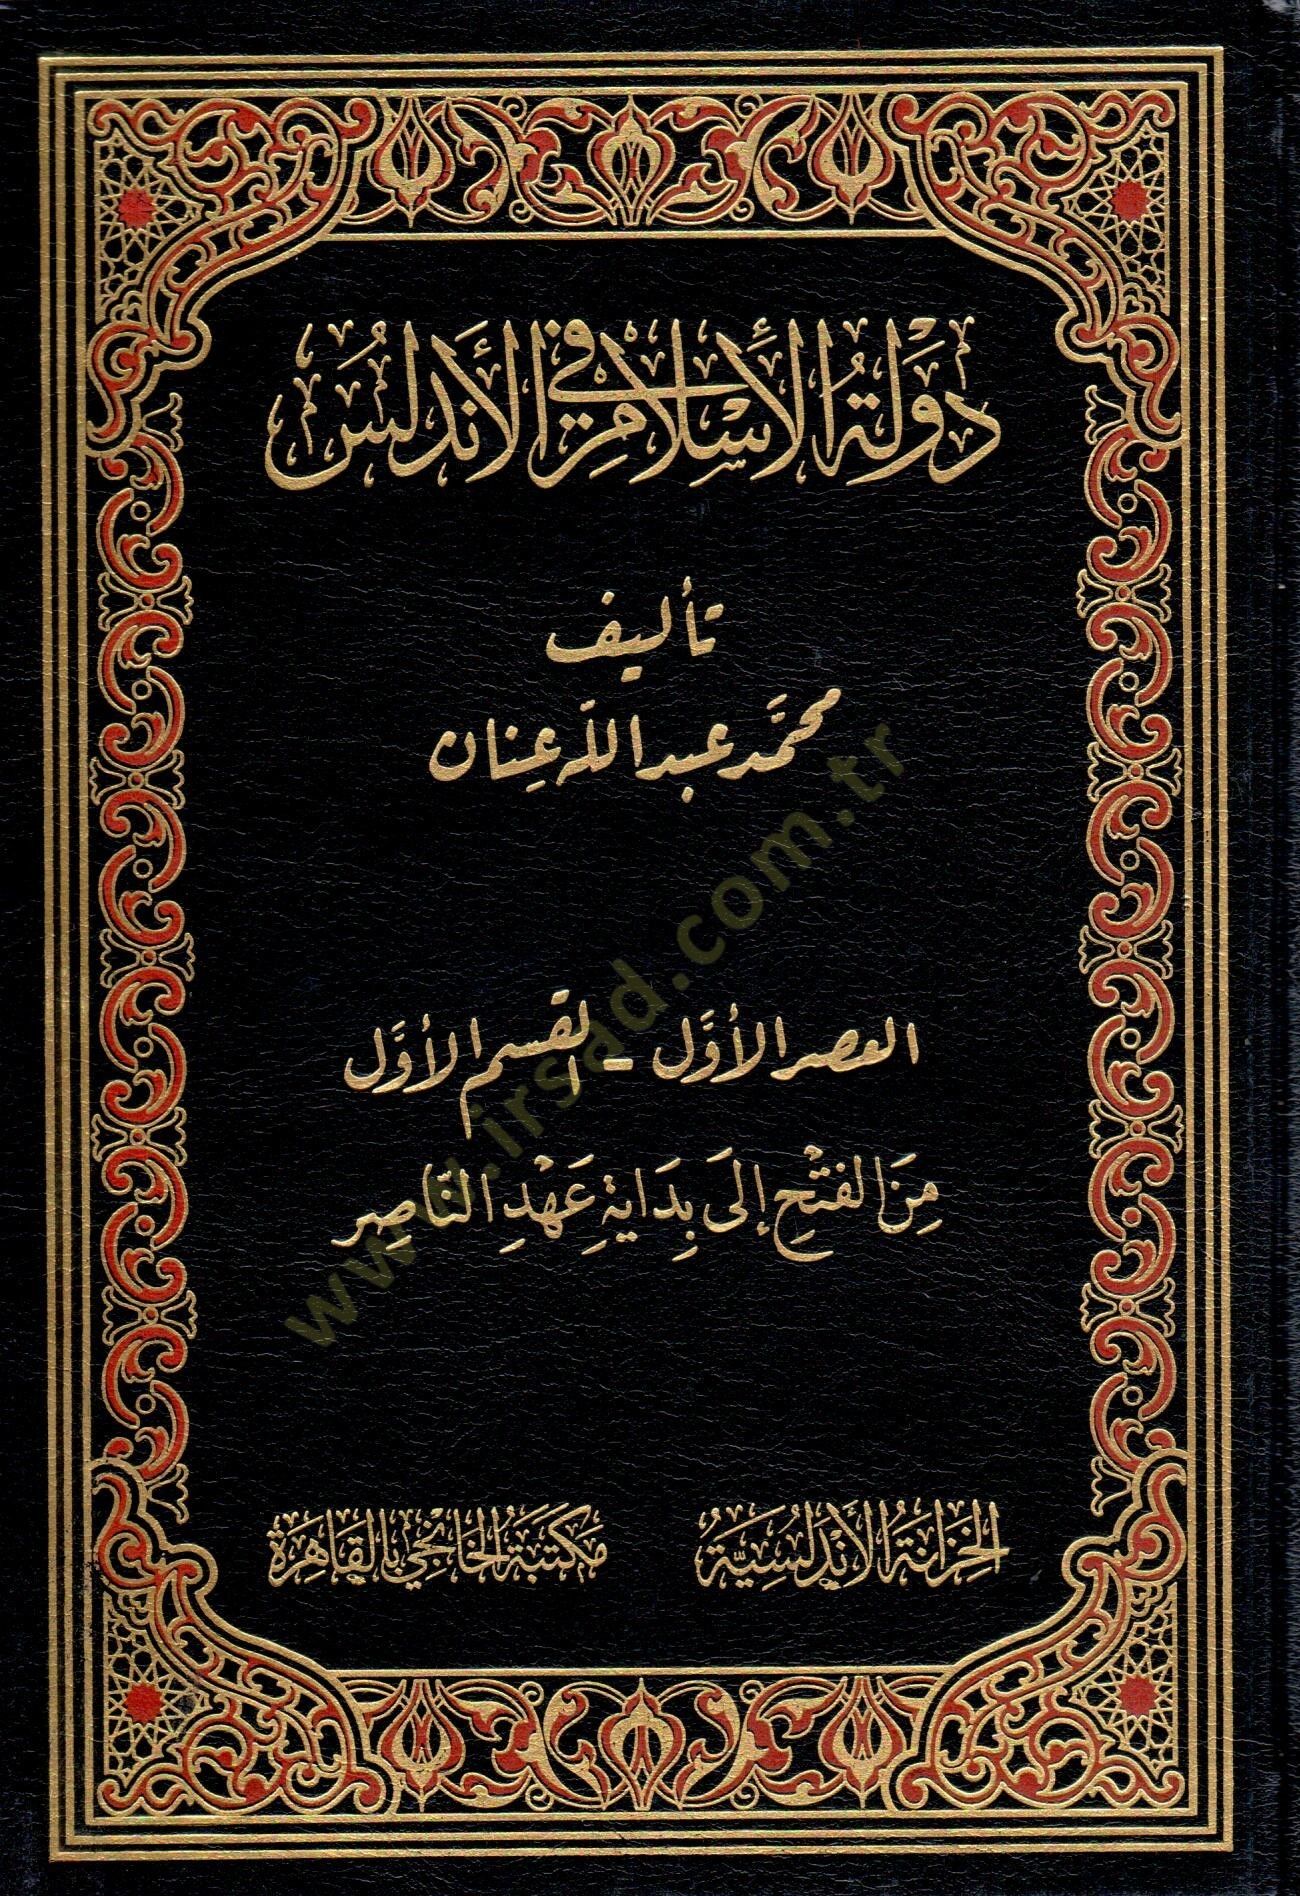 دَوْلَةُ الْإِسْلَامِ فِي الْأَنْدَلُسِ
تأليف
محمَّد عبد اللّٰه عِنان
العصر الأوَّل - القسم الأوَّل
مِنَ الفتْحِ إلىَ بِدَايةِ عَهْدِ النَّاصِر
الخِزَانَةُ الأَنْدَلُسِيَّةُ
مَكتَبَةُ الخَانْجِي بِالقَاهِرَة
www.irsad.com.tr